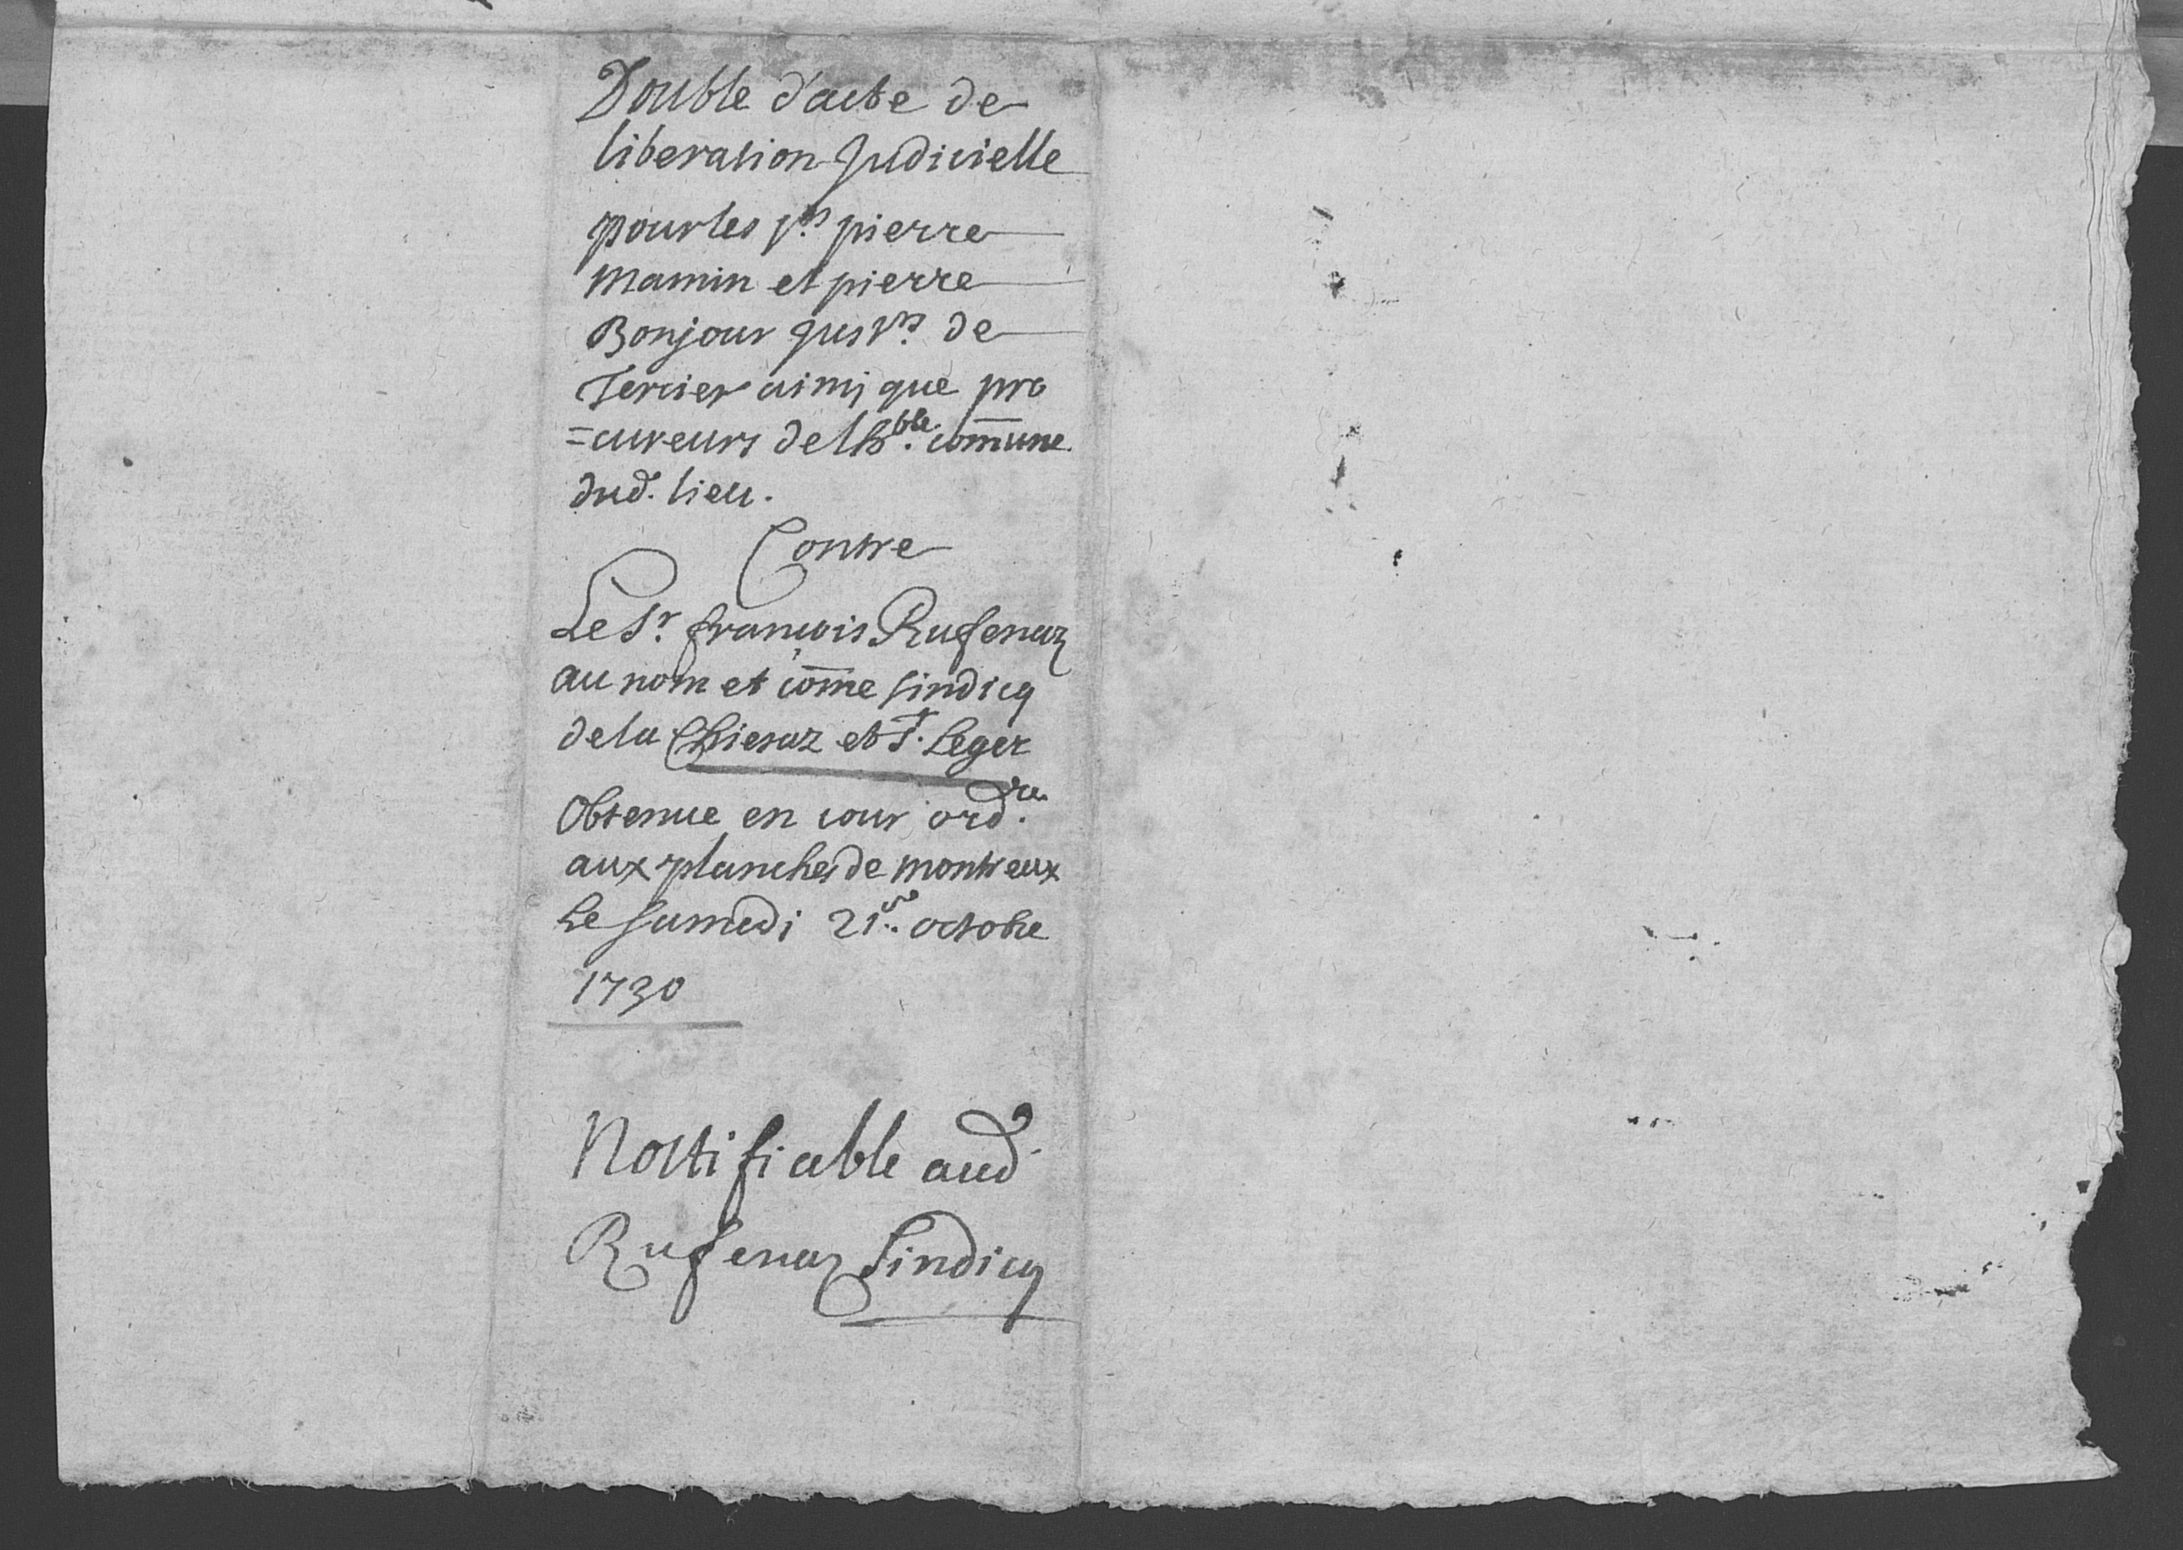 Double d'acte de
liberation Judicielle
pour les s.rs pierre
Mamin et pierre
Bonjour jus.rs de
Tercier ainsj que pro
=cureurs de lh.ble com̄une
dud. lieu.
Contre
Le S.r françois Rufenaz
au nom et com̄e Sindicq
de la Chiesaz et S.t Leger
Obtenue en cour ord.re
aux planches de montreux
Le Samedi 21.e octobre
1730
Nottifiable aud.
Rufenaz Sindicq